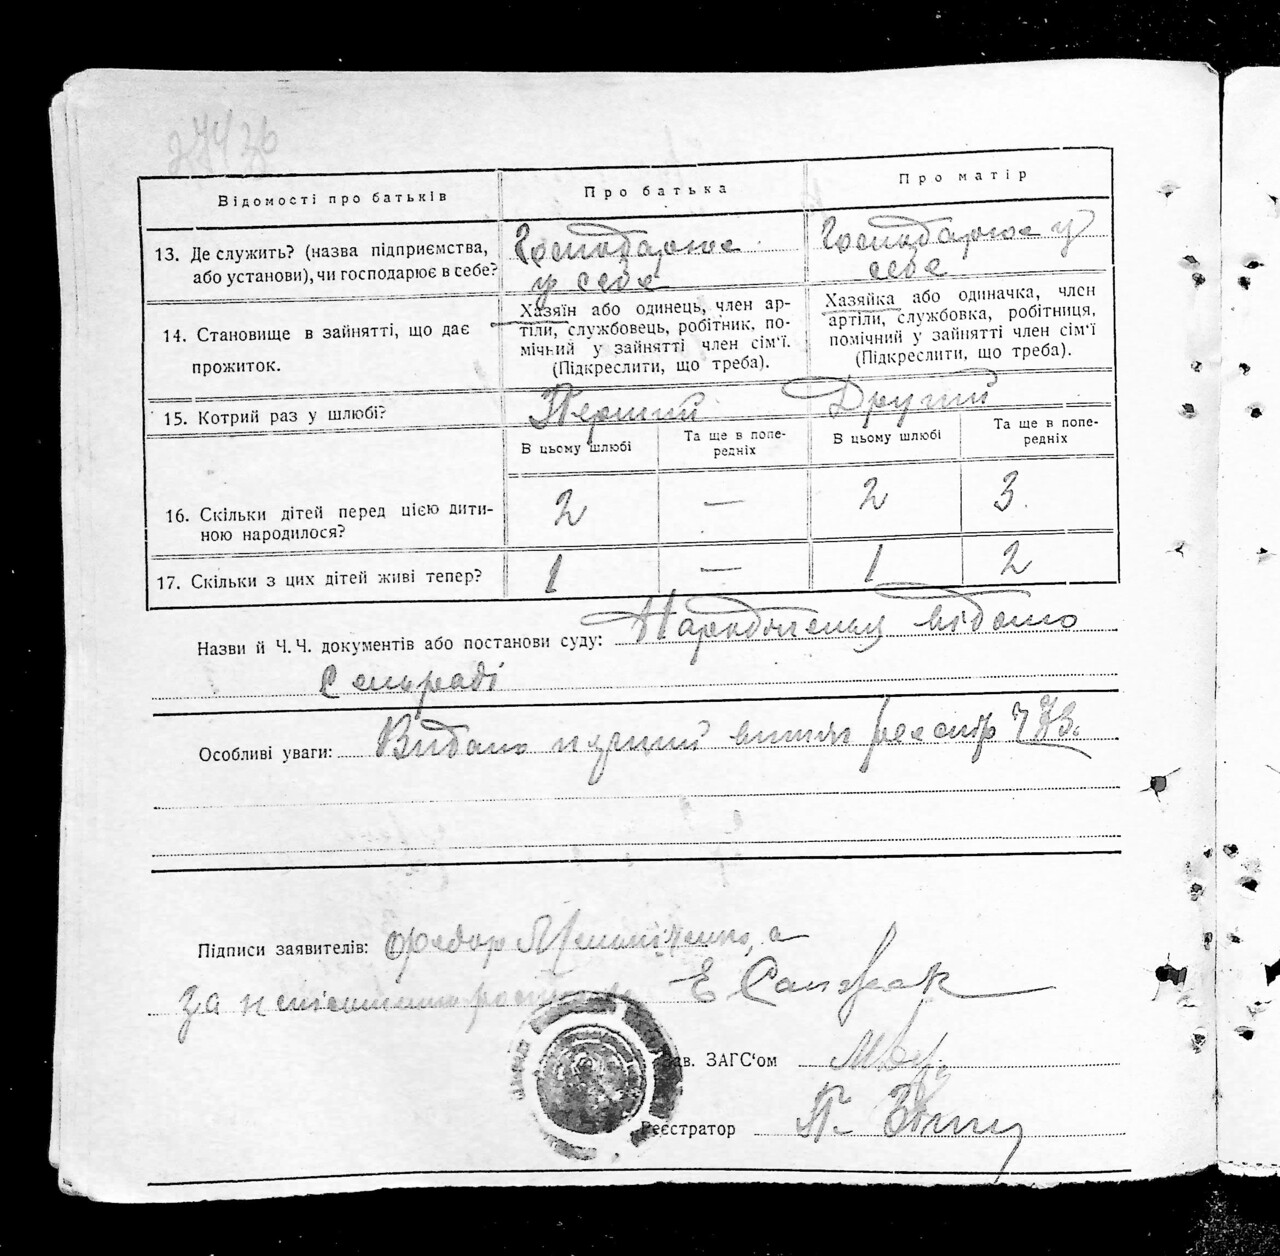 Відомості про батьків
Про батька
Про матір
13. Де служить? (назва підприємства,
або установи), чи господарює в себе?
Господарює
у себе
Господарює у
себе
14. Становище в зайнятті, що дає
прожиток.
Хазяїн або одинець, член ар-
тіли, службовець, робітник, по-
мічний у зайнятті член сім'ї.
(Підкреслити, що треба).
Хазяйка або одиначка, член
артіли, службовка, робітниця,
помічний у зайнятті член сім'ї
(Підкреслити, що треба).
15. Котрий раз у шлюбі?
Перший
Другий
В цьому шлюбі
Та ще в попе-
редніх
В цьому шлюбі
Та ще в попе-
редніх
16. Скільки дітей перед цією дити-
ною народилося?
2
—
2
3
17. Скільки з цих дітей живі тепер?
1
—
1
2
Назви й Ч.Ч. документів або постанови суду: відомо
Сельраді
Особливі уваги: Видано
Підписи заявителів: Федор
за Е
Зав. ЗАГС'ом
Реєстратор П.